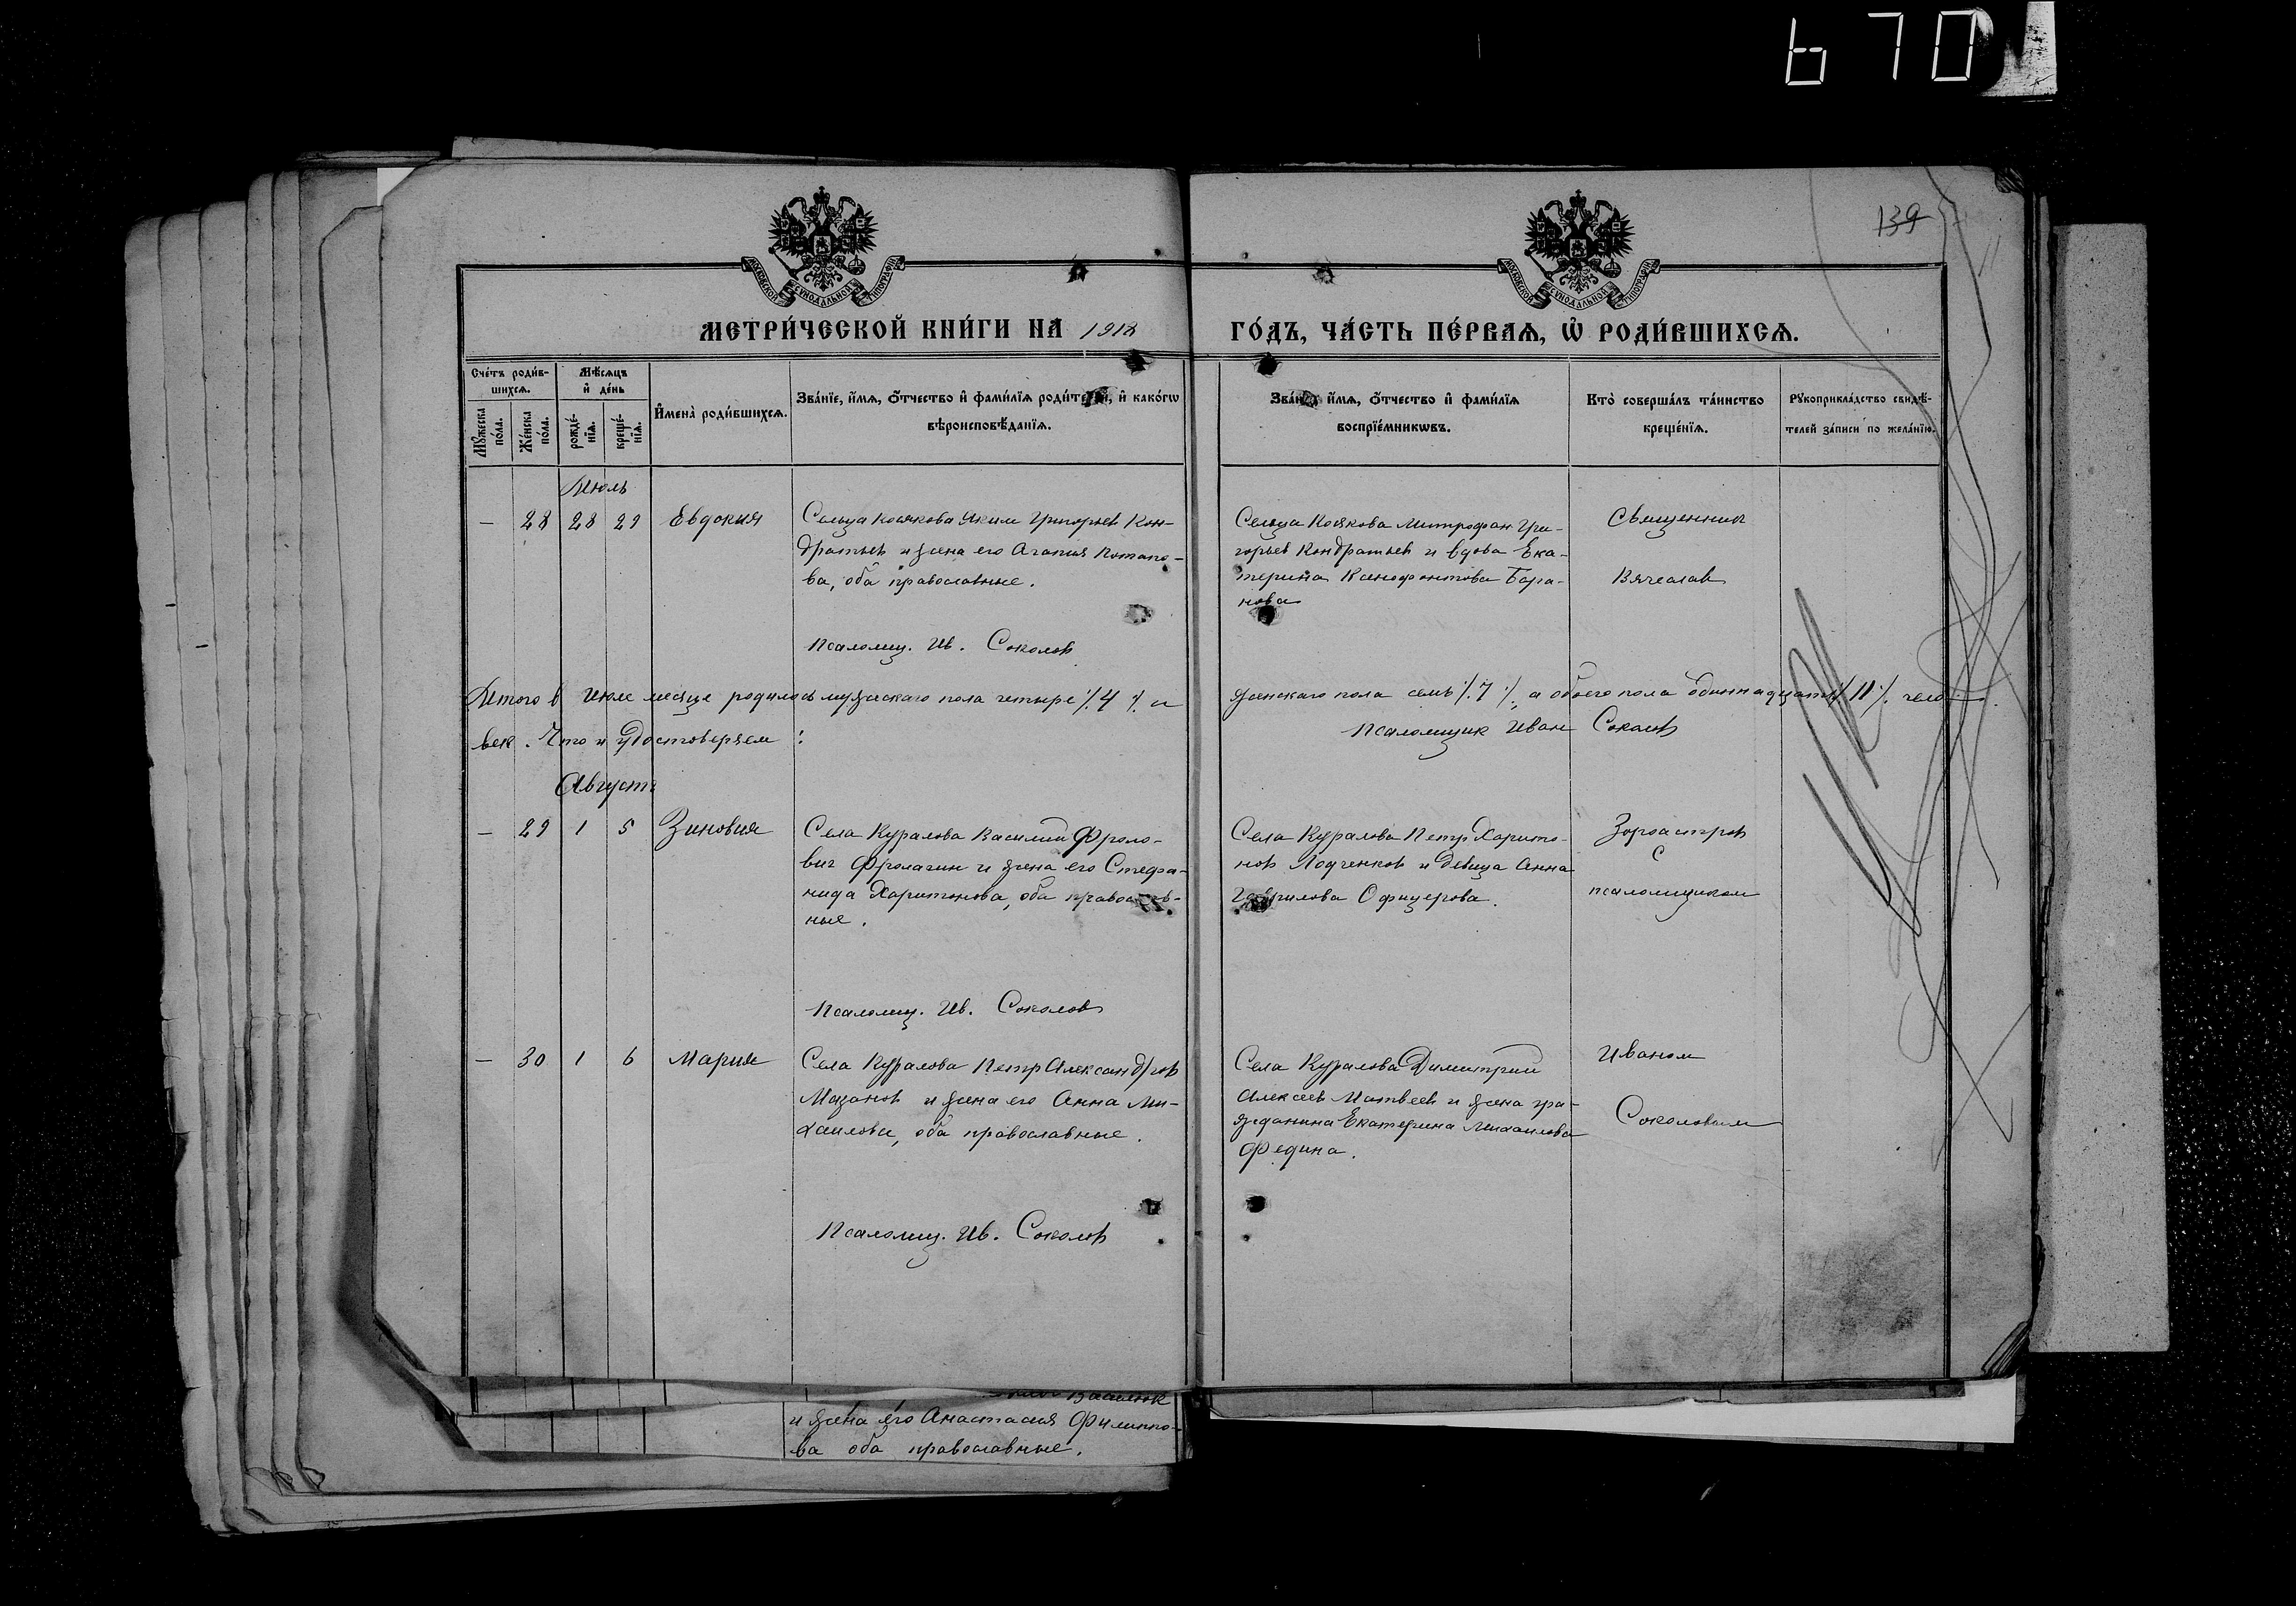 670
139
МОСКОВСКОЙ СѴНОДАЛЬНОЙ ТИПОГРАФІИ
МОСКОВСКОЙ СѴНОДАЛЬНОЙ ТИПОГРАФІИ
МЕТРИ́ЧЕСКОЙ КНИ́ГИ НА 1918
ГО́ДЪ, ЧА́СТЬ ПЕ́РВАѦ, Ѡ҆ РОДИ́ВШИХСѦ.
Сче́тъ роди́в-
шихсѧ.
Мꙋжеска по́ла.
Же́нска по́ла.
Мѣ́сѧцъ
и҆ де́нь
рожде́-
нїѧ.
креще́-
нїѧ.
И҆мена̀ роди́вшихсѧ.
Зва́нїе, и҆́мѧ, ѻ҆́тчество и҆ фами́лїѧ роди́телей, и҆ како́гѡ
вѣроисповѣ́данїѧ.
Зва́нїе, и҆́мѧ, ѻ҆́тчество и҆ фами́лїѧ
воспрїе́мникѡвъ.
Кто̀ соверша́лъ та́инство
креще́нїѧ.
Рꙋкоприкла́дство свидѣ́-
телей за́писи по жела́нїю.
Июль
— 28 28 29 Евдокия
Сельца Косякова Яким Григорьев Кон-
дратьев и жена его Агапия Потапо-
ва, оба православные.
Псаломщ. Ив. Соколов
Сельца Косякова Митрофан Гри-
горьев Кондратьев и вдова Ека-
терина Ксенофонтова Бара-
нова
Священник
Вячеслав
Итого в июле месяце родилось мужскаго пола четыре ./.4./. и женскаго пола семь ./.7./., а обоего пола одиннадцать ./.11./. чело-
век. Что и удостоверяем: Псаломщик Иван Соколов
Августъ
— 29 1 5 Зиновия
Села Куралова Василий Фроло-
вич Фролагин и жена его Стефа-
нида Харитонова, оба православ-
ные.
Псаломщ. Ив. Соколов
Села Куралова Петр Харито-
нов Лодченков и девица Анна
Гаврилова Офицерова.
Зороастров
с
псаломщиком
— 30 1 6 Мария
Села Куралова Петр Александров
Мазанов и жена его Анна Ми-
хаилова, оба православные.
Псаломщ. Ив. Соколов
Села Куралова Димитрий
Алексеев Матвеев и жена гра-
жданина Екатерина Михаилова
Федина.
Иваном
Соколовым
и жена его Анастасия Филиппо-
ва оба православные.